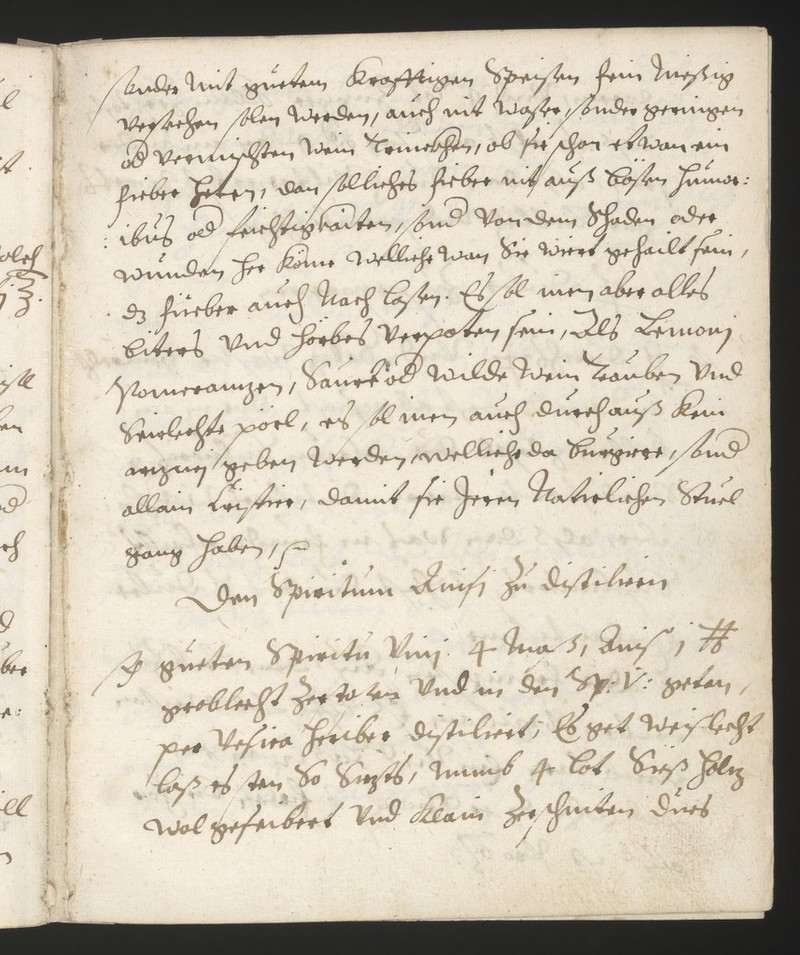 sonder mit guetem Krafftigen Speisen fein mesig
versechen solen werden, auch nit waser, sonder geringen
od vermischten wein Trinckhen, ob sie schon etwan ein
fieber heten, dan solliches fieber nit auß bösen humor:
ibus od feichtigkaiten, sond von dem Schaden oder
wunden her köme welliche wan Sie wiert gehailt sein,
dz fieber auch Nach lasen. Es sol inen aber alles
biters und herbes verpoten sein, Als Lemonj
Pomeranzen, Saure od wilde wein Trauben und
Seirlechte, es sol inen auch durchauß kein
arznej geben werden, welliche da burgiere, sond
allain Cristier, damit sie Jeren Natirlichen Stuel
gang haben,
Den Spiritum Anisi zu distiliern
gueten Spiritu Vinj 4 Maß, Anis j ℔
groblecht und in den Sp: V: geten,
per Vesica heriber distiliert, Es get weislecht
laß es sten So Sizts, nimb 4 lot Sieß holz
wol geseibert und klain zerschniten dues